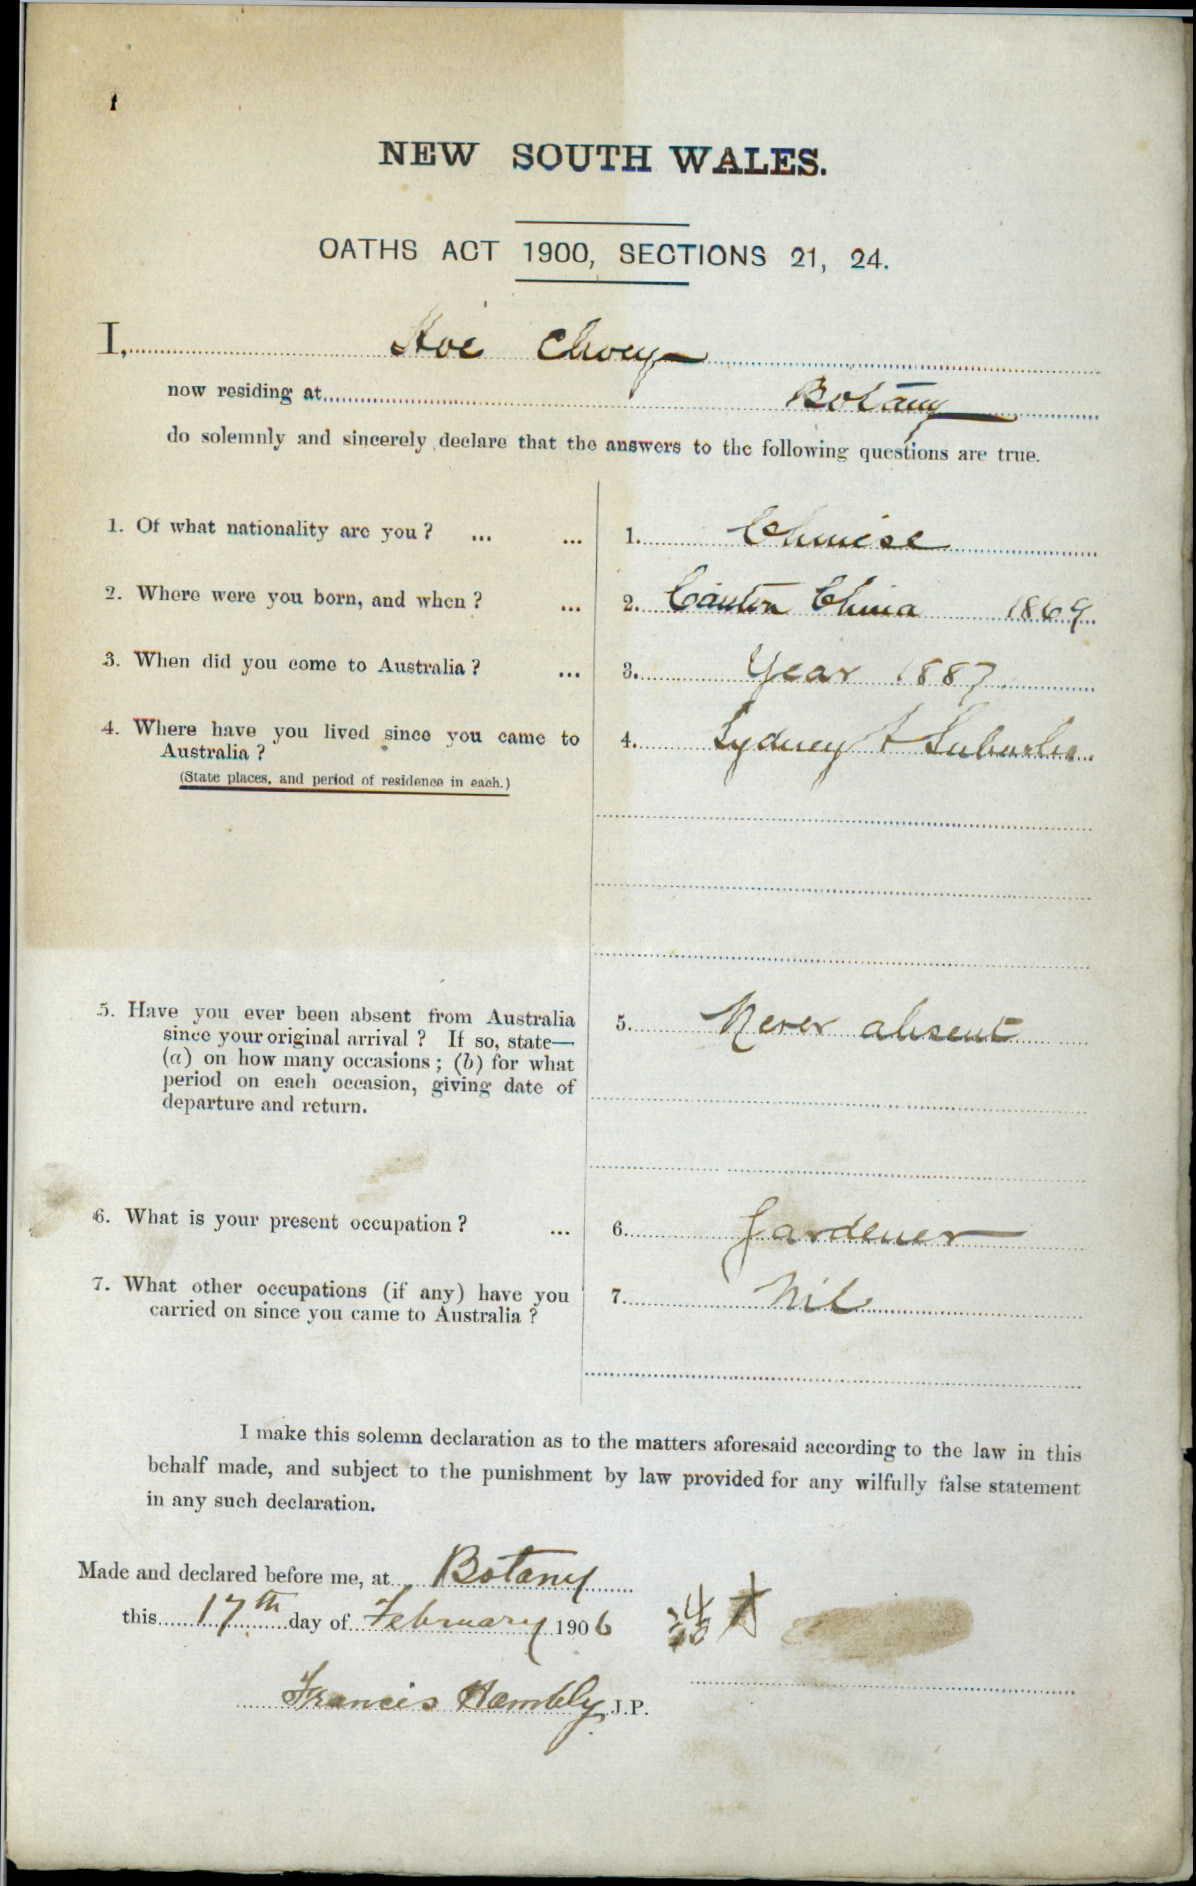 NEW SOUTH WALES.
OATHS ACT 1900, SECTIONS 21, 24.
I, Hoe Choey
now residing at Botany
do solemnly and sincerely declare that the answers to the following questions are true.
1. Of what nationality are you ? ... ... 1. Chinese
2. Where were you born, and when ? ... 2. Canton China 1869
3. When did you come to Australia ? ... 3. Year 1887
4. Where have you lived since you came to 4. Sydney & Suburbs
Australia ?
(State places, and period of residence in each.)
5. Have you ever been absent from Australia 5. Never absent
since your original arrival ? If so, state—
(a) on how many occasions ; (b) for what
period on each occasion, giving date of
departure and return.
6. What is your present occupation ? ... 6. Gardener
7. What other occupations (if any) have you 7. Nil
carried on since you came to Australia ?
I make this solemn declaration as to the matters aforesaid according to the law in this
behalf made, and subject to the punishment by law provided for any wilfully false statement
in any such declaration.
Made and declared before me, at Botany
this 17th day of February 1906
Francis Hambly J.P.